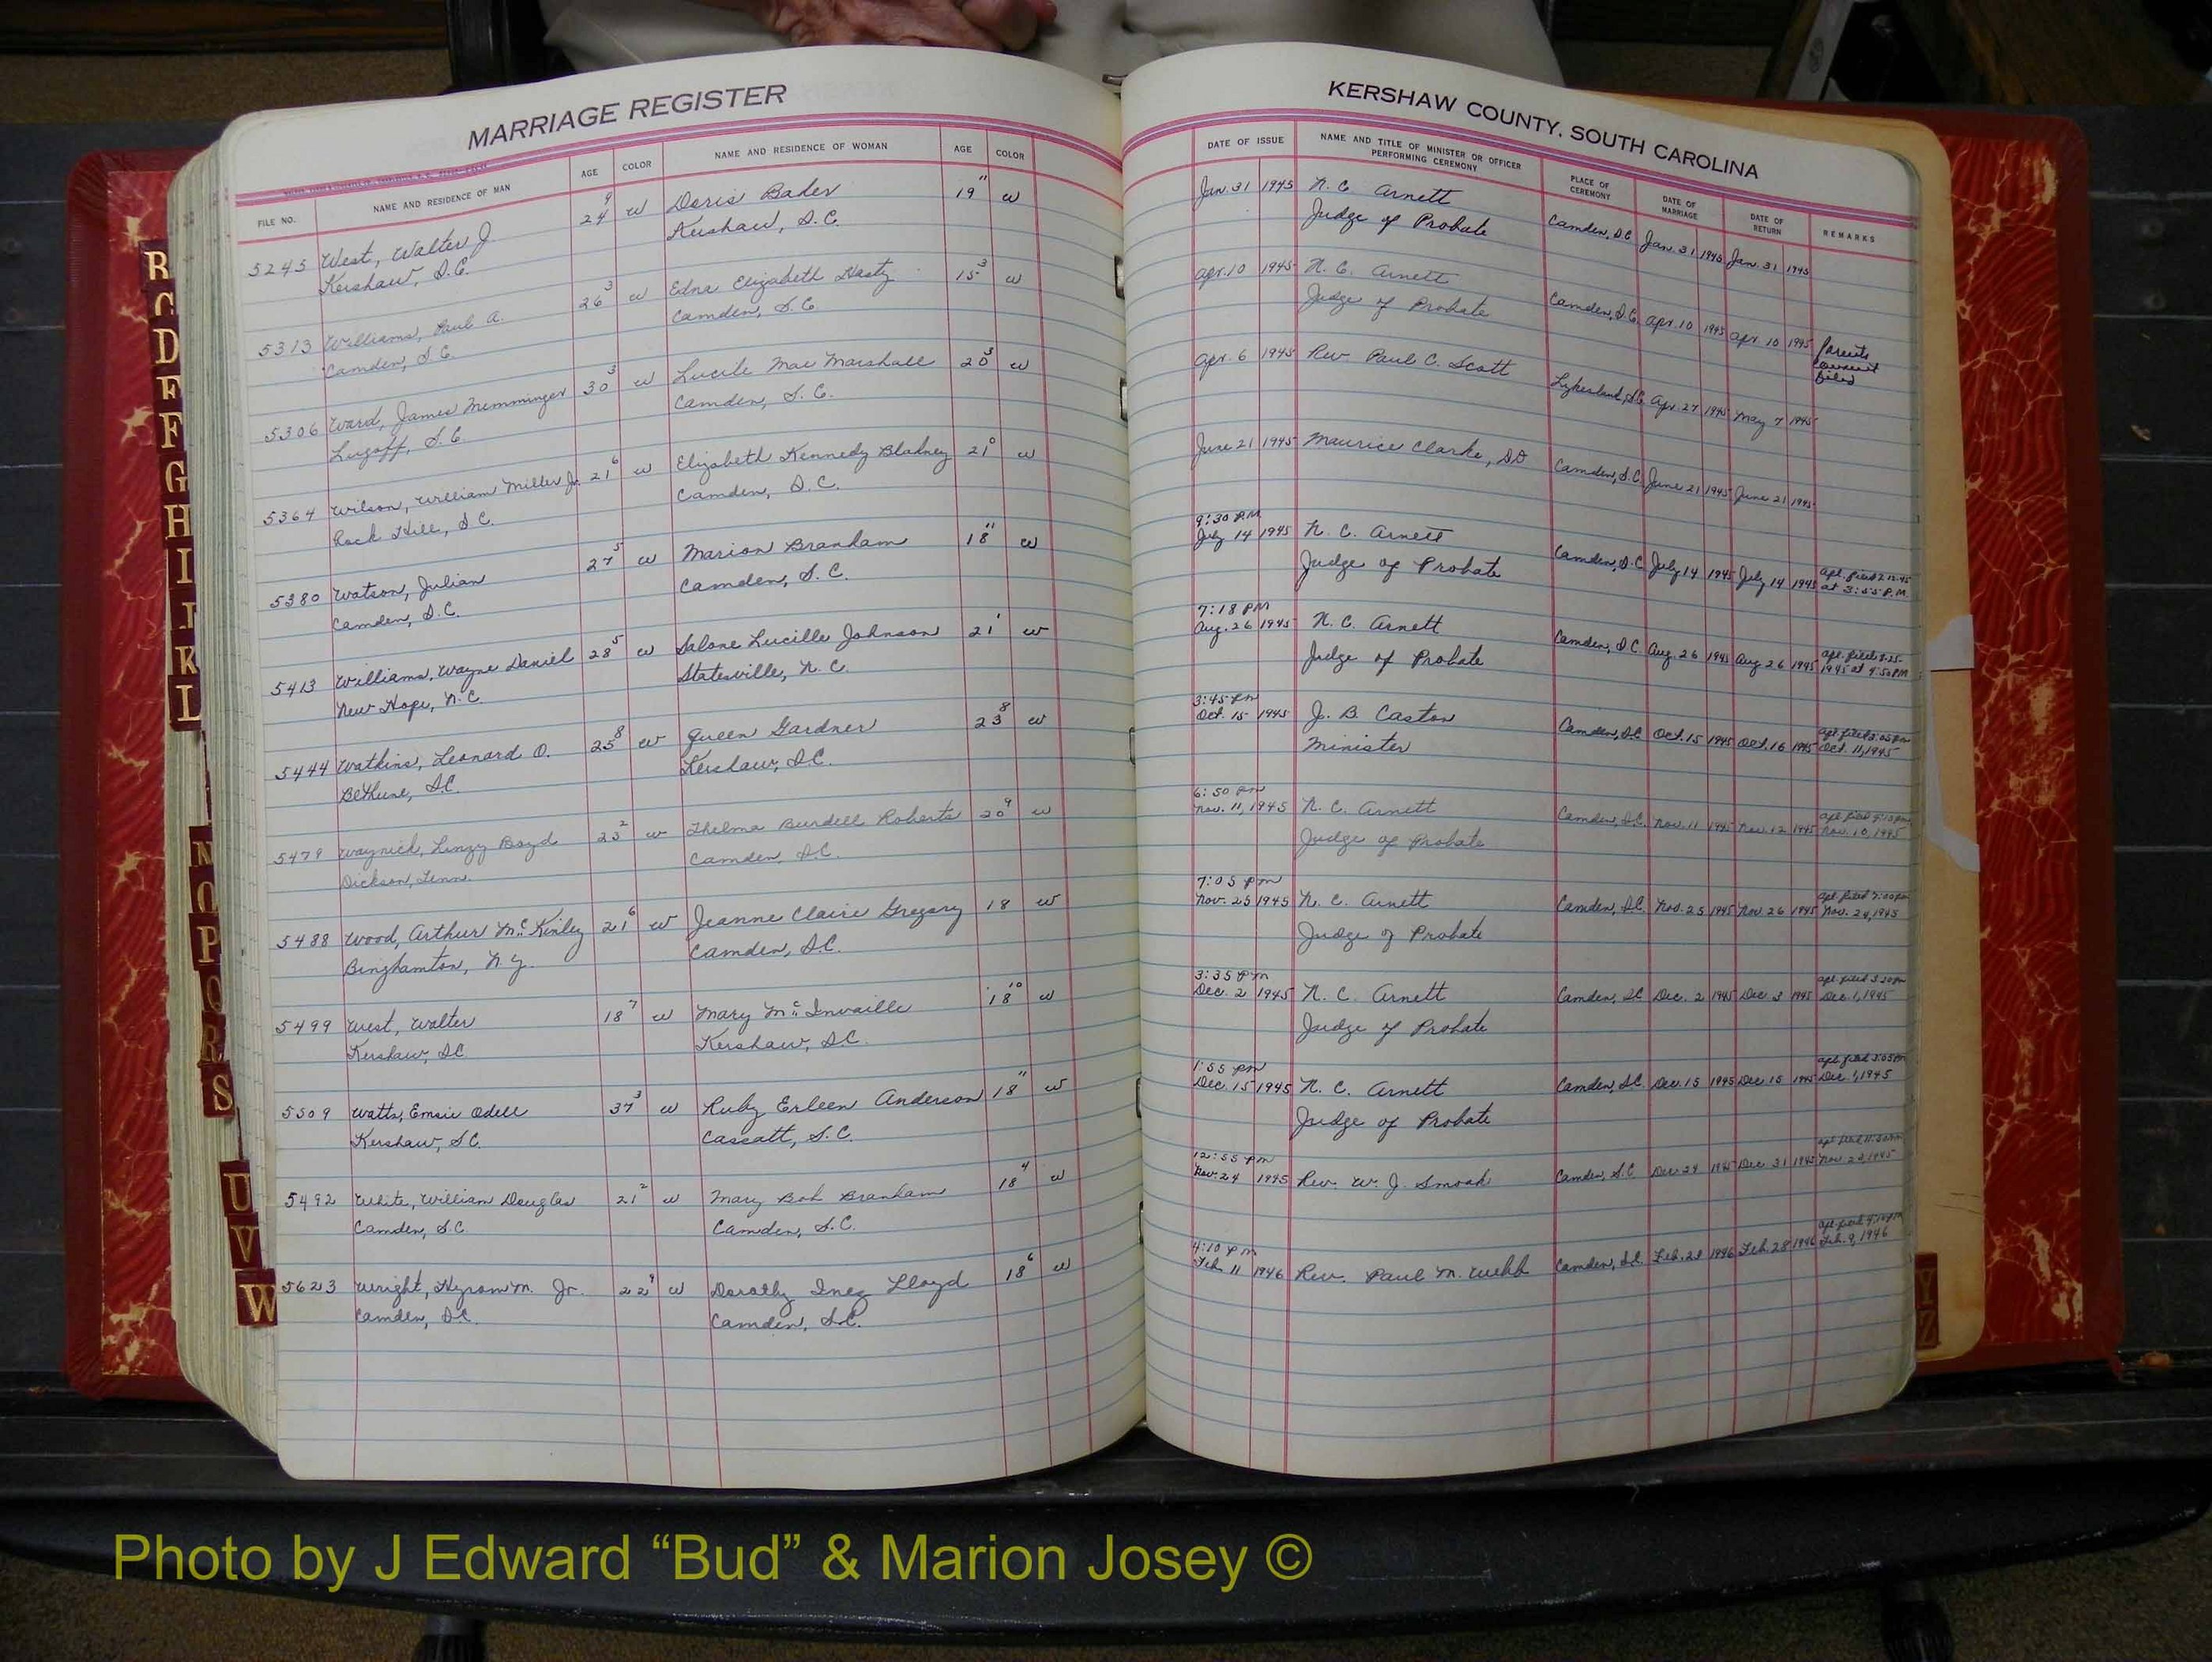 MARRIAGE REGISTER
FILE NO. NAME AND RESIDENCE OF MAN AGE COLOR NAME AND RESIDENCE OF WOMAN AGE COLOR
5245 West, Walter J 24 9 w Doris Baker 19 11 w
Kershaw, S.C. Kershaw, S.C.
5313 Williams, Paul A. 26 3 w Edna Elizabeth Hasty 15 3 w
Camden, S.C. Camden, S.C.
5306 Ward, James Memminger 30 3 w Lucile Mae Marshall 20 3 w
Lugoff, S.C. Camden, S.C.
5364 Wilson, William Miller Jr. 21 6 w Elizabeth Kennedy Blakney 21 0 w
Rock Hill, S.C. Camden, S.C.
5380 Watson, Julian 27 5 w Marion Branham 18 11 w
Camden, S.C. Camden, S.C.
5413 Williams, Wayne Daniel 28 5 w Salone Lucille Johnson 21 1 w
New Hope, N.C. Statesville, N.C.
5444 Watkins, Leonard O. 25 8 w Queen Gardner 23 8 w
Bethune, S.C. Kershaw, S.C.
5479 Waynick, Linzy Boyd 23 2 w Thelma Burdell Roberts 20 9 w
Dickson, Tenn. Camden, S.C.
5488 Wood, Arthur McKinley 21 6 w Jeanne Claire Gregory 18 w
Binghamton, N.Y. Camden, S.C.
5499 West, Walter 18 7 w Mary McInvaille 18 10 w
Kershaw, S.C. Kershaw, S.C.
5509 Watts, Odell 37 3 w Ruby Erleen Anderson 18 11 w
Kershaw, S.C. Cassatt, S.C.
5492 White, William Douglas 21 2 w Mary Bob Branham 18 4 w
Camden, S.C. Camden, S.C.
5623 Wright, Hyrom M. Jr. 22 9 w Dorothy Inez Lloyd 18 6 w
Camden, S.C. Camden, S.C.
KERSHAW COUNTY, SOUTH CAROLINA
DATE OF ISSUE NAME AND TITLE OF MINISTER OR OFFICER PERFORMING CEREMONY PLACE OF CEREMONY DATE OF MARRIAGE DATE OF RETURN REMARKS
Jan. 31 1945 N. C. Arnett
Judge of Probate Camden, S.C. Jan. 31 1945 Jan. 31 1945
Apr. 10 1945 N. C. Arnett
Judge of Probate Camden, S.C. Apr. 10 1945 Apr. 10 1945 Parents consent filed
Apr. 6 1945 Rev. Paul C. Scott
Lykesland, S.C. Apr. 27 1945 May 7 1945
June 21 1945 Maurice Clarke, DD Camden, S.C. June 21 1945 June 21 1945
9:30 P.M.
July 14 1945 N. C. Arnett
Judge of Probate Camden, S.C. July 14 1945 July 14 1945 apl. filed at 3:55 P.M.
7:18 PM
Aug. 26 1945 N. C. Arnett
Judge of Probate Camden, S.C. Aug. 26 1945 Aug 26 1945 apl. filed 8-25-1945 at 4:50 PM
3:45 PM
Oct. 15 1945 J. B. Caston Camden, S.C. Oct. 15 1945 Oct. 16 1945 apl. filed Oct. 11, 1945
Minister
6:50 PM
Nov. 11, 1945 N. C. Arnett Camden, S.C. Nov. 11 1945 Nov. 12 1945 apl. filed Nov. 10, 1945
Judge of Probate
7:05 PM
Nov. 25 1945 N. C. Arnett Camden, S.C. Nov. 25 1945 Nov 26 1945 apl. filed 7:00 PM Nov. 24, 1945
Judge of Probate
3:35 PM
Dec. 2 1945 N. C. Arnett Camden, S.C. Dec. 2 1945 Dec 3 1945 apl. filed 3:20 PM Dec. 1, 1945
Judge of Probate
1:55 PM
Dec. 15 1945 N. C. Arnett Camden, S.C. Dec. 15 1945 Dec. 15 1945 apl. filed Dec. 1, 1945
Judge of Probate
12:55 PM
Nov. 24 1945 Rev. W. J. Smoak Camden, S.C. Dec 24 1945 Dec 31 1945 apl. filed Nov. 1945
4:10 PM
Feb 11 1946 Rev. Paul M. Webb Camden, S.C. Feb. 1946 Feb. 28 1946 apl. filed Feb. 9, 1946
R
D
F
G
H
I
K
L
N
O
P
Q
R
S
U
V
W
Y
Z
Photo by J Edward “Bud” & Marion Josey ©